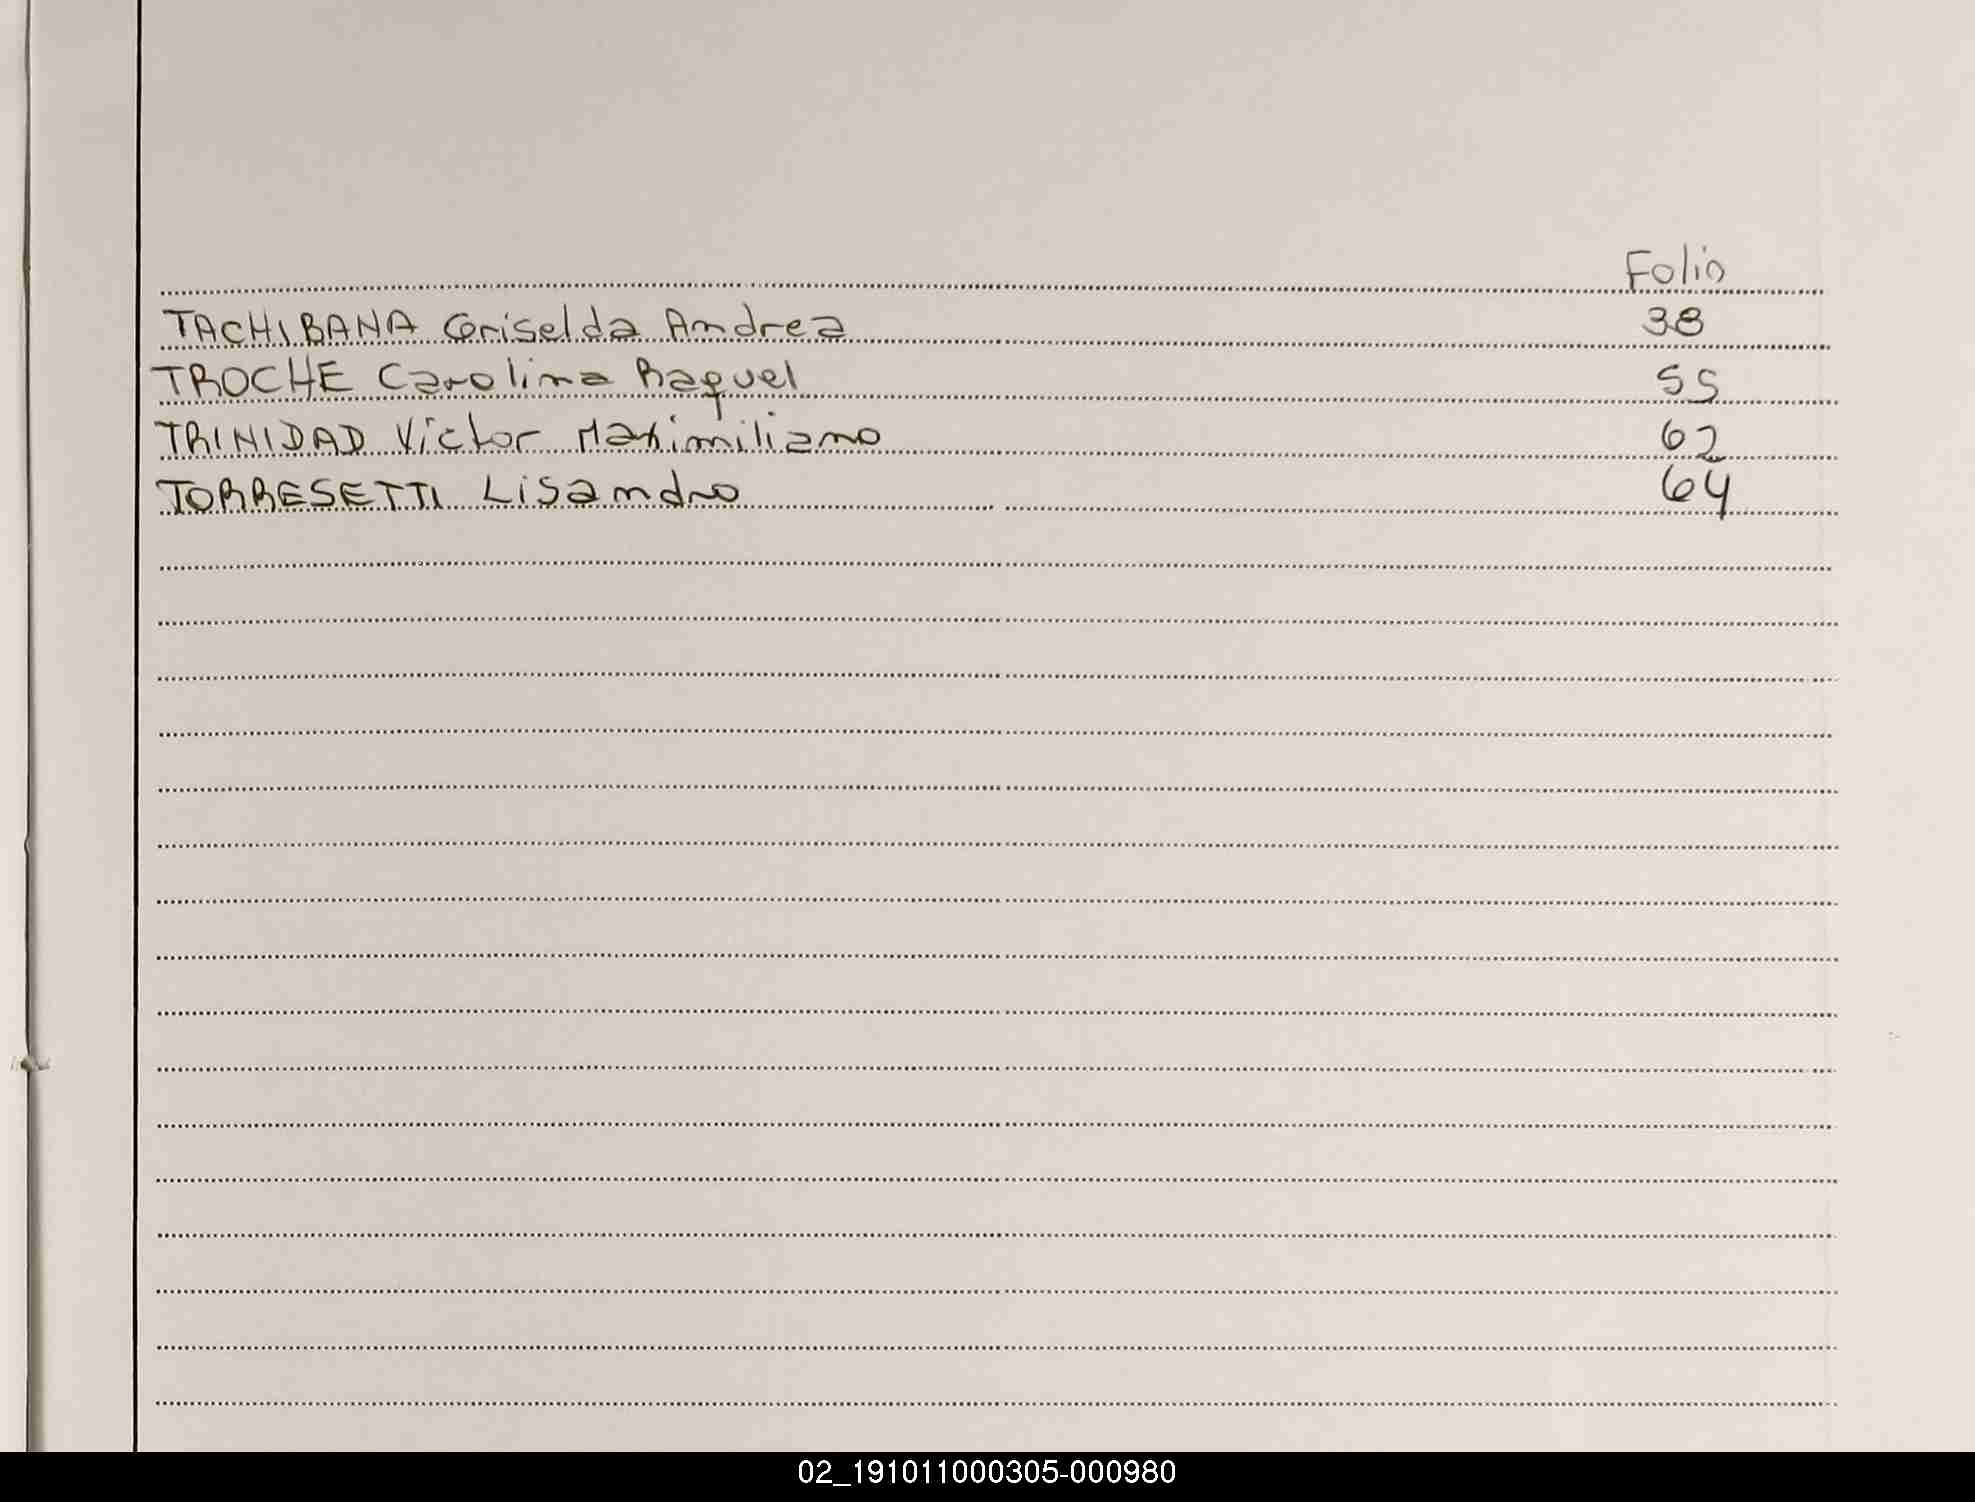 Folio
TACHIBANA Griselda Andrea 38
TROCHE Carolina Raquel 55
TRINIDAD Victor Maximiliano 62
TORRESETTI Lisandro 64
02_191011000305-000980